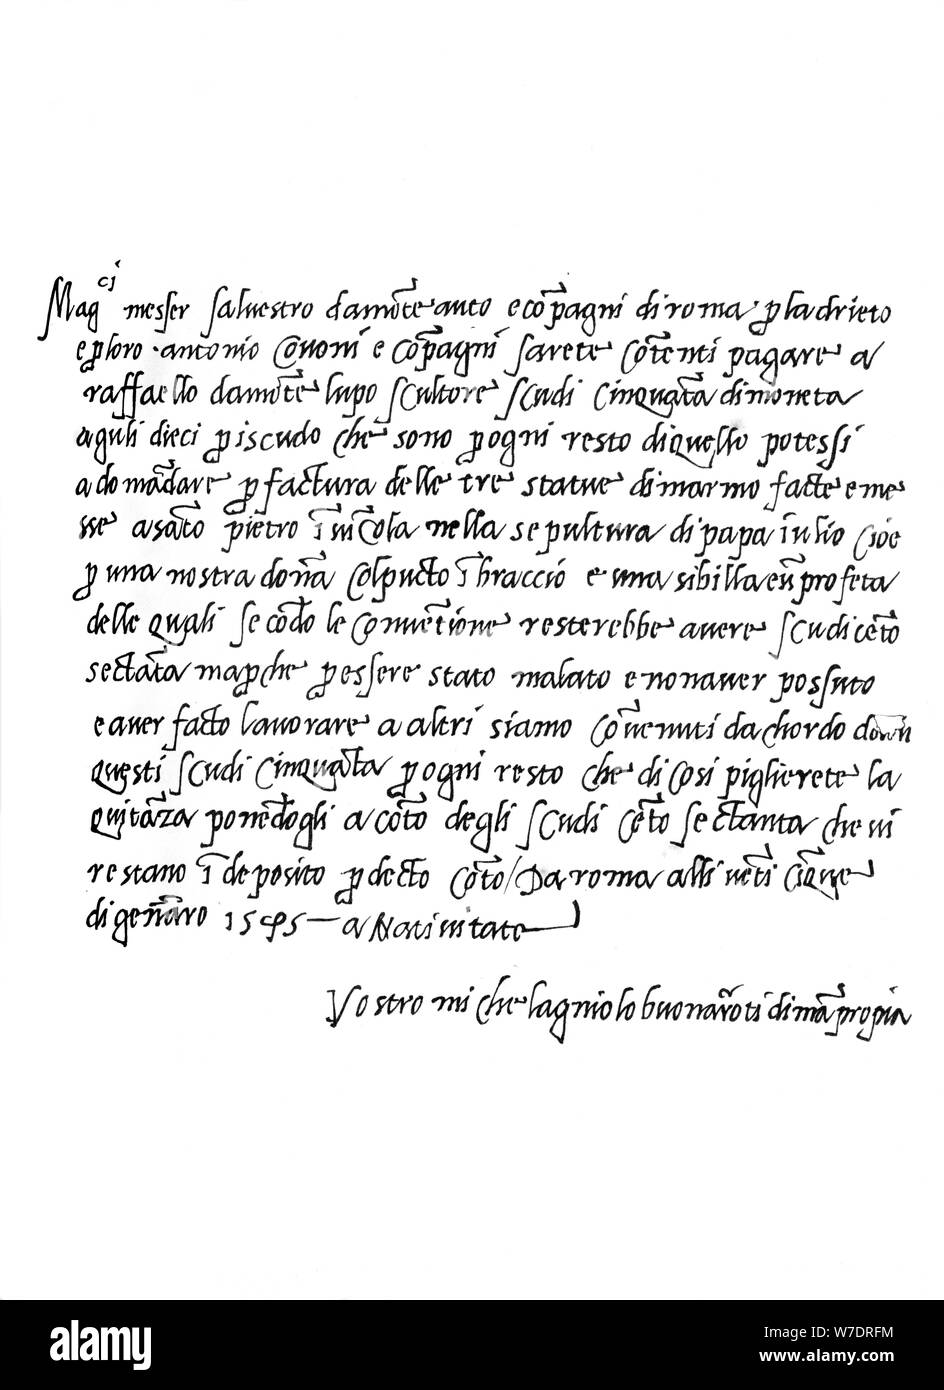 Mag^ci messer salvestro damō̄te auto e cōpagni di roma p la drieto
e p loro · antonio Covoni e Cōpagni sarete Cōtenti pagare a
raffaello damōte lupo scultore scudi Cinquāta di moneta
a guli dieci p iscudo che sono p ogni resto di quello potessi
a domādare p factura delle tre statue di marmo facte e me
sse a sāto pietro ī vīcola nella sepultura di papa iulio Cioe
p una nostra donā Col pucto ī braccio e una sibilla e ū profeta
delle quali secōdo le Convētione resterebbe avere scudi cēto
sectāta ma pche p essere stato malato e non aver possuto
e aver facto lavorare a altri siamo Cōvenuti dachordo di
questi scudi Cinquāta p ogni resto che di Cosi piglierete la
quitāza ponēdogli a cōto degli scudi Cēto sectanta che vi
restano ī deposito p decto Cōto / Da roma alli vēti Cīque
di genāro 1545 — a Nativitate
Vostro michelagniolo buonaroti di mā propia
alamy
Image ID: W7DRFM
www.alamy.com